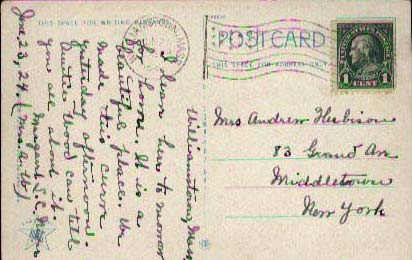 THIS SPACE FOR WRITING
POSTCARD
THIS SPACE FOR ADDRESS ONLY
1 CENT 1
Williamstown, Mass.
I have
home. It is a
beautiful place. We
made this curve
yesterday afternoon.
Wood can tell
you all about it.
Margaret
June 23, 24. (Mrs. A. W.)
Mrs Andrew Harbison
83 Grand Av
Middletown
New York